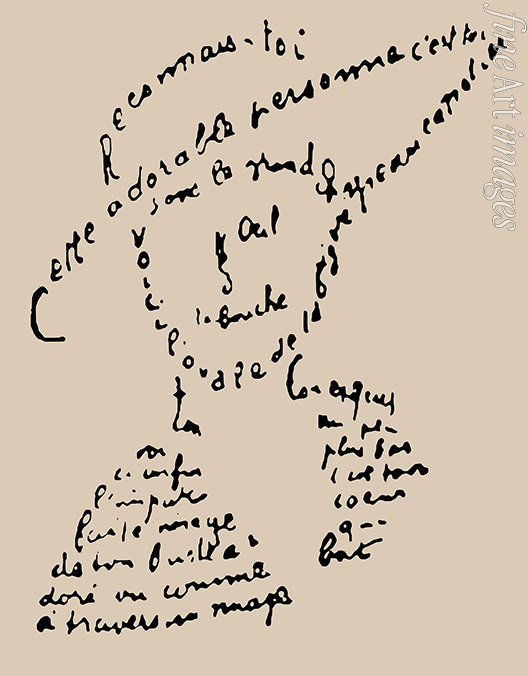 Reconnais-toi
Cette adorable personne c'est toi
sous le grand chapeau canotier
Œil
la bouche
Voici l'ovale de ta figure
ton
cou
un peu
plus bas
c'est ton
coeur
qui
bat
ci enfin
l'imparfaite image
de ton buste a
doré vu comme
à travers un nuage
fine Art images